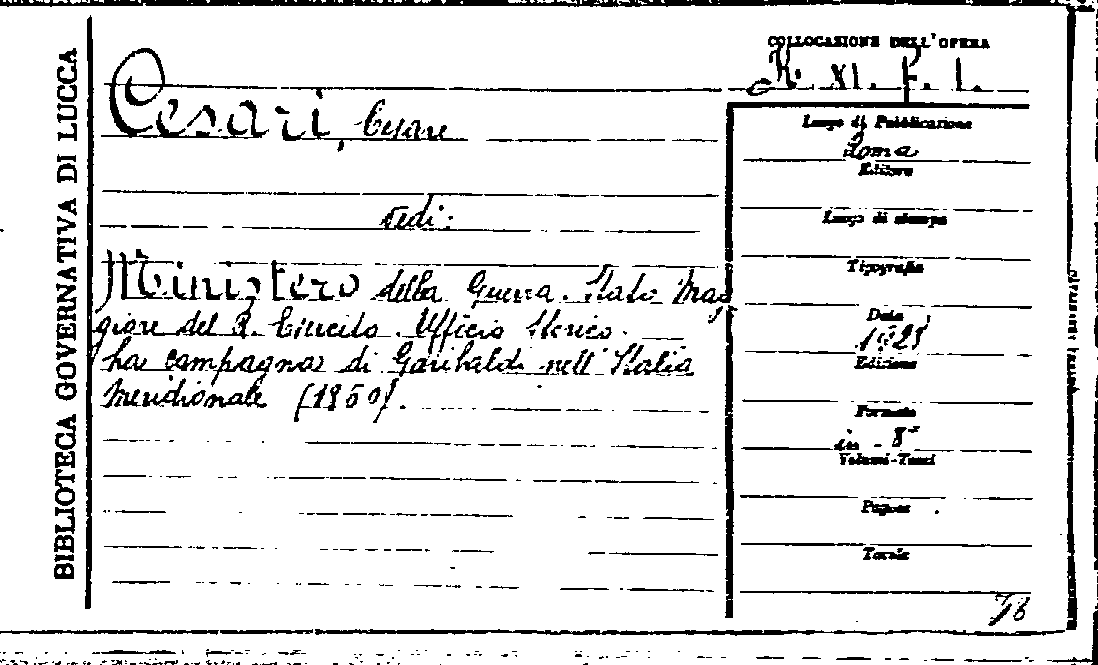 BIBLIOTECA GOVERNATIVA DI LUCCA
COLLOCAZIONE DELL'OPERA
XI. F. 1.
Cesari, Cesare
vedi:
Ministero della Guerra. Stato Mag
giore del R. Esercito. Ufficio Storico.
La campagna di Garibaldi nell'Italia
Meridionale (1860).
Luogo di Pubblicazione
Roma
Editore
Luogo di stampa
Tipografia
Data
1928
Edizione
Formato
in - 8°
Volumi-Tomi
Pagine
Tavole